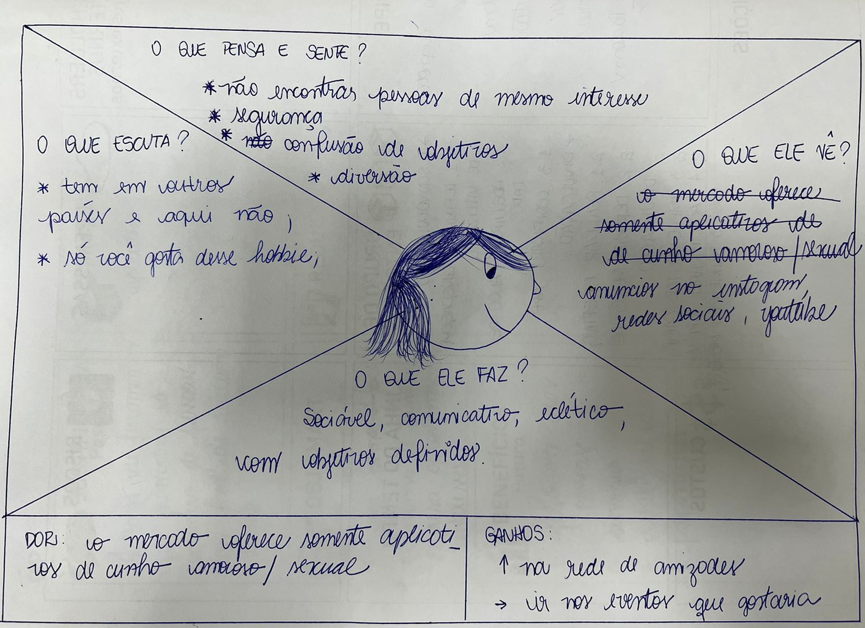 O QUE PENSA E SENTE?
* não encontrar pessoas de mesmo interesse
* segurança
* não confusão de objetivos
* diversão
O QUE ESCUTA?
* tem em outros
países e aqui não;
* só você gosta desse hobbie,
O QUE ELE VÊ?
o mercado oferece
somente aplicativos de
de cunho amoroso/sexual
anuncios no instagram,
redes sociais, youtube
O QUE ELE FAZ?
Sociável, comunicativo, eclético,
com objetivos definidos.
DOR: o mercado oferece somente aplicati_
vos de cunho amoroso/ sexual
GANHOS:
↑ na rede de amizades
→ ir nos eventos que gostaria